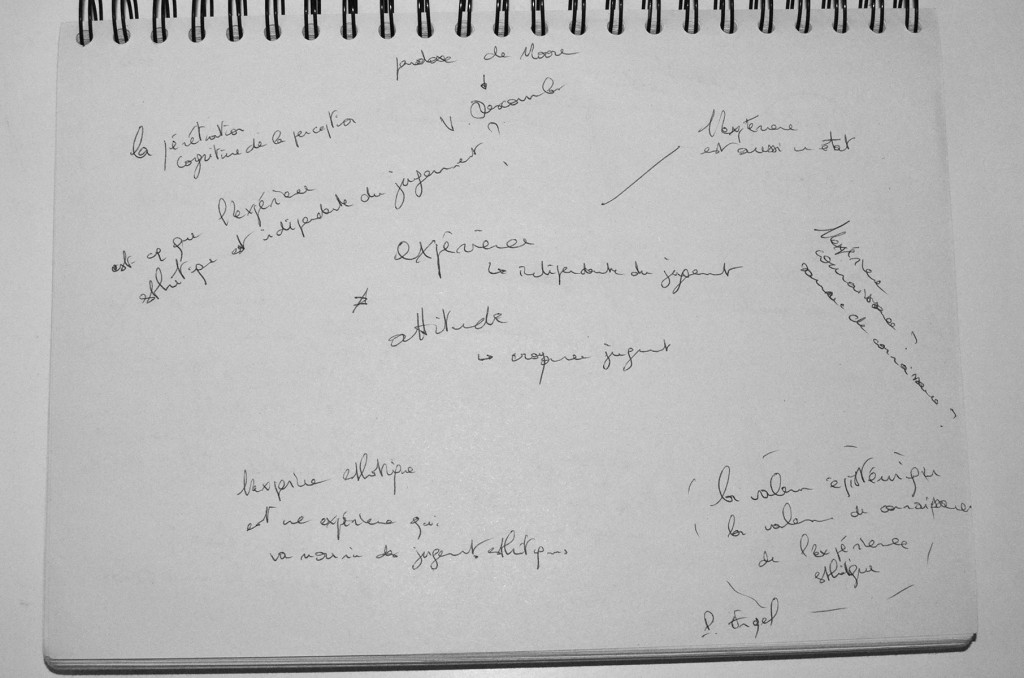 paradoxe de Moore
↓
V. Descombes
la pénétration
cognitive de la perception
est ce que l'expérience
esthétique est indépendante du jugement ?
l'expérience
est aussi un état
expérience
↳ indépendante du jugement
≠
attitude
↳ croyance jugement
l'expérience
connaissance ?
source de connaissance ?
l'expérience esthétique
est une expérience qui
va nourrir des jugements esthétiques
la valeur épistémique
la valeur de connaissance
de l'expérience
esthétique
P. Engel